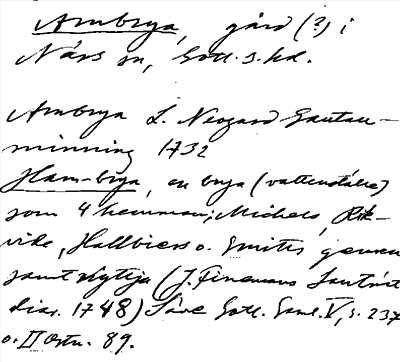 Ambrya, gård (?) i
Närs sn, Gotl. s. hd.
Ambrya L. Neogard Gautau-
minning 1732
Ham-brya, en brya (vattenställe)
som 4 hemman; Michels, Rik-
vide, Hallbiers o. Smits
samt nyttja (J. Linemans
diar. 1748) Säve Gotl. Saml. V, s. 237
o. II Ortn. 89.